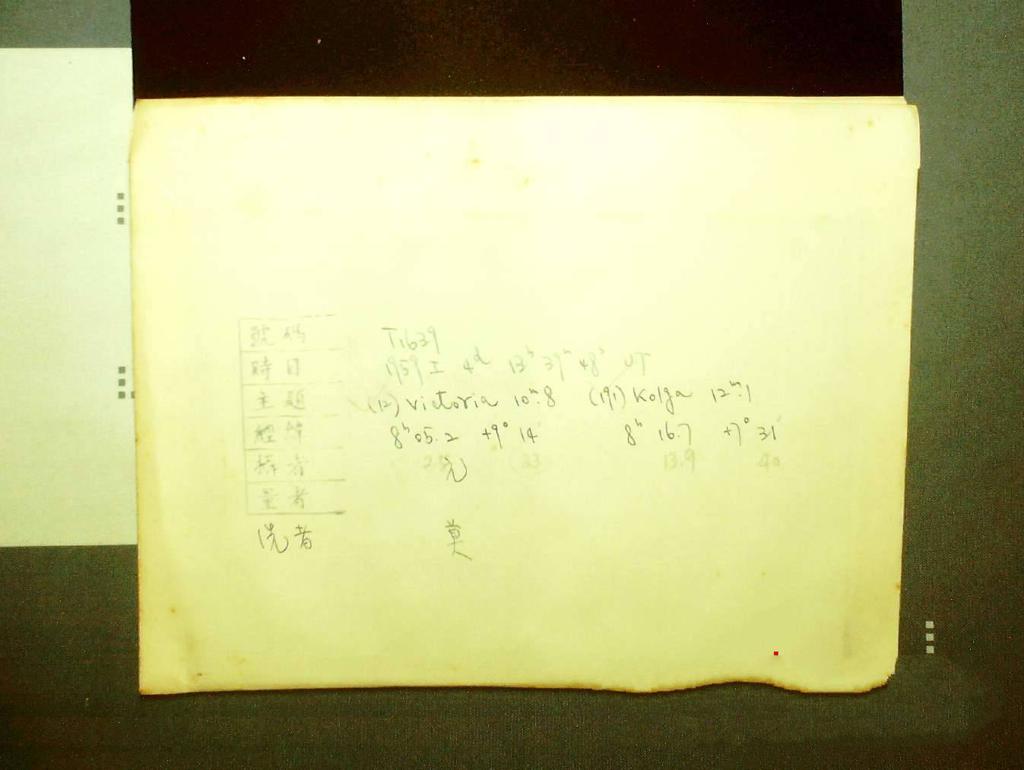 號碼 T1639
時日 1959 I 4ᵈ 13ʰ 39ᵐ 48ˢ UT
主題 (12) Victoria 10ᵐ.8 (191) Kolga 12ᵐ.1
8ʰ 05.2 +9° 14' 8ʰ 16.7 +7° 31'
33 13.9 40
量者
洗者 莫